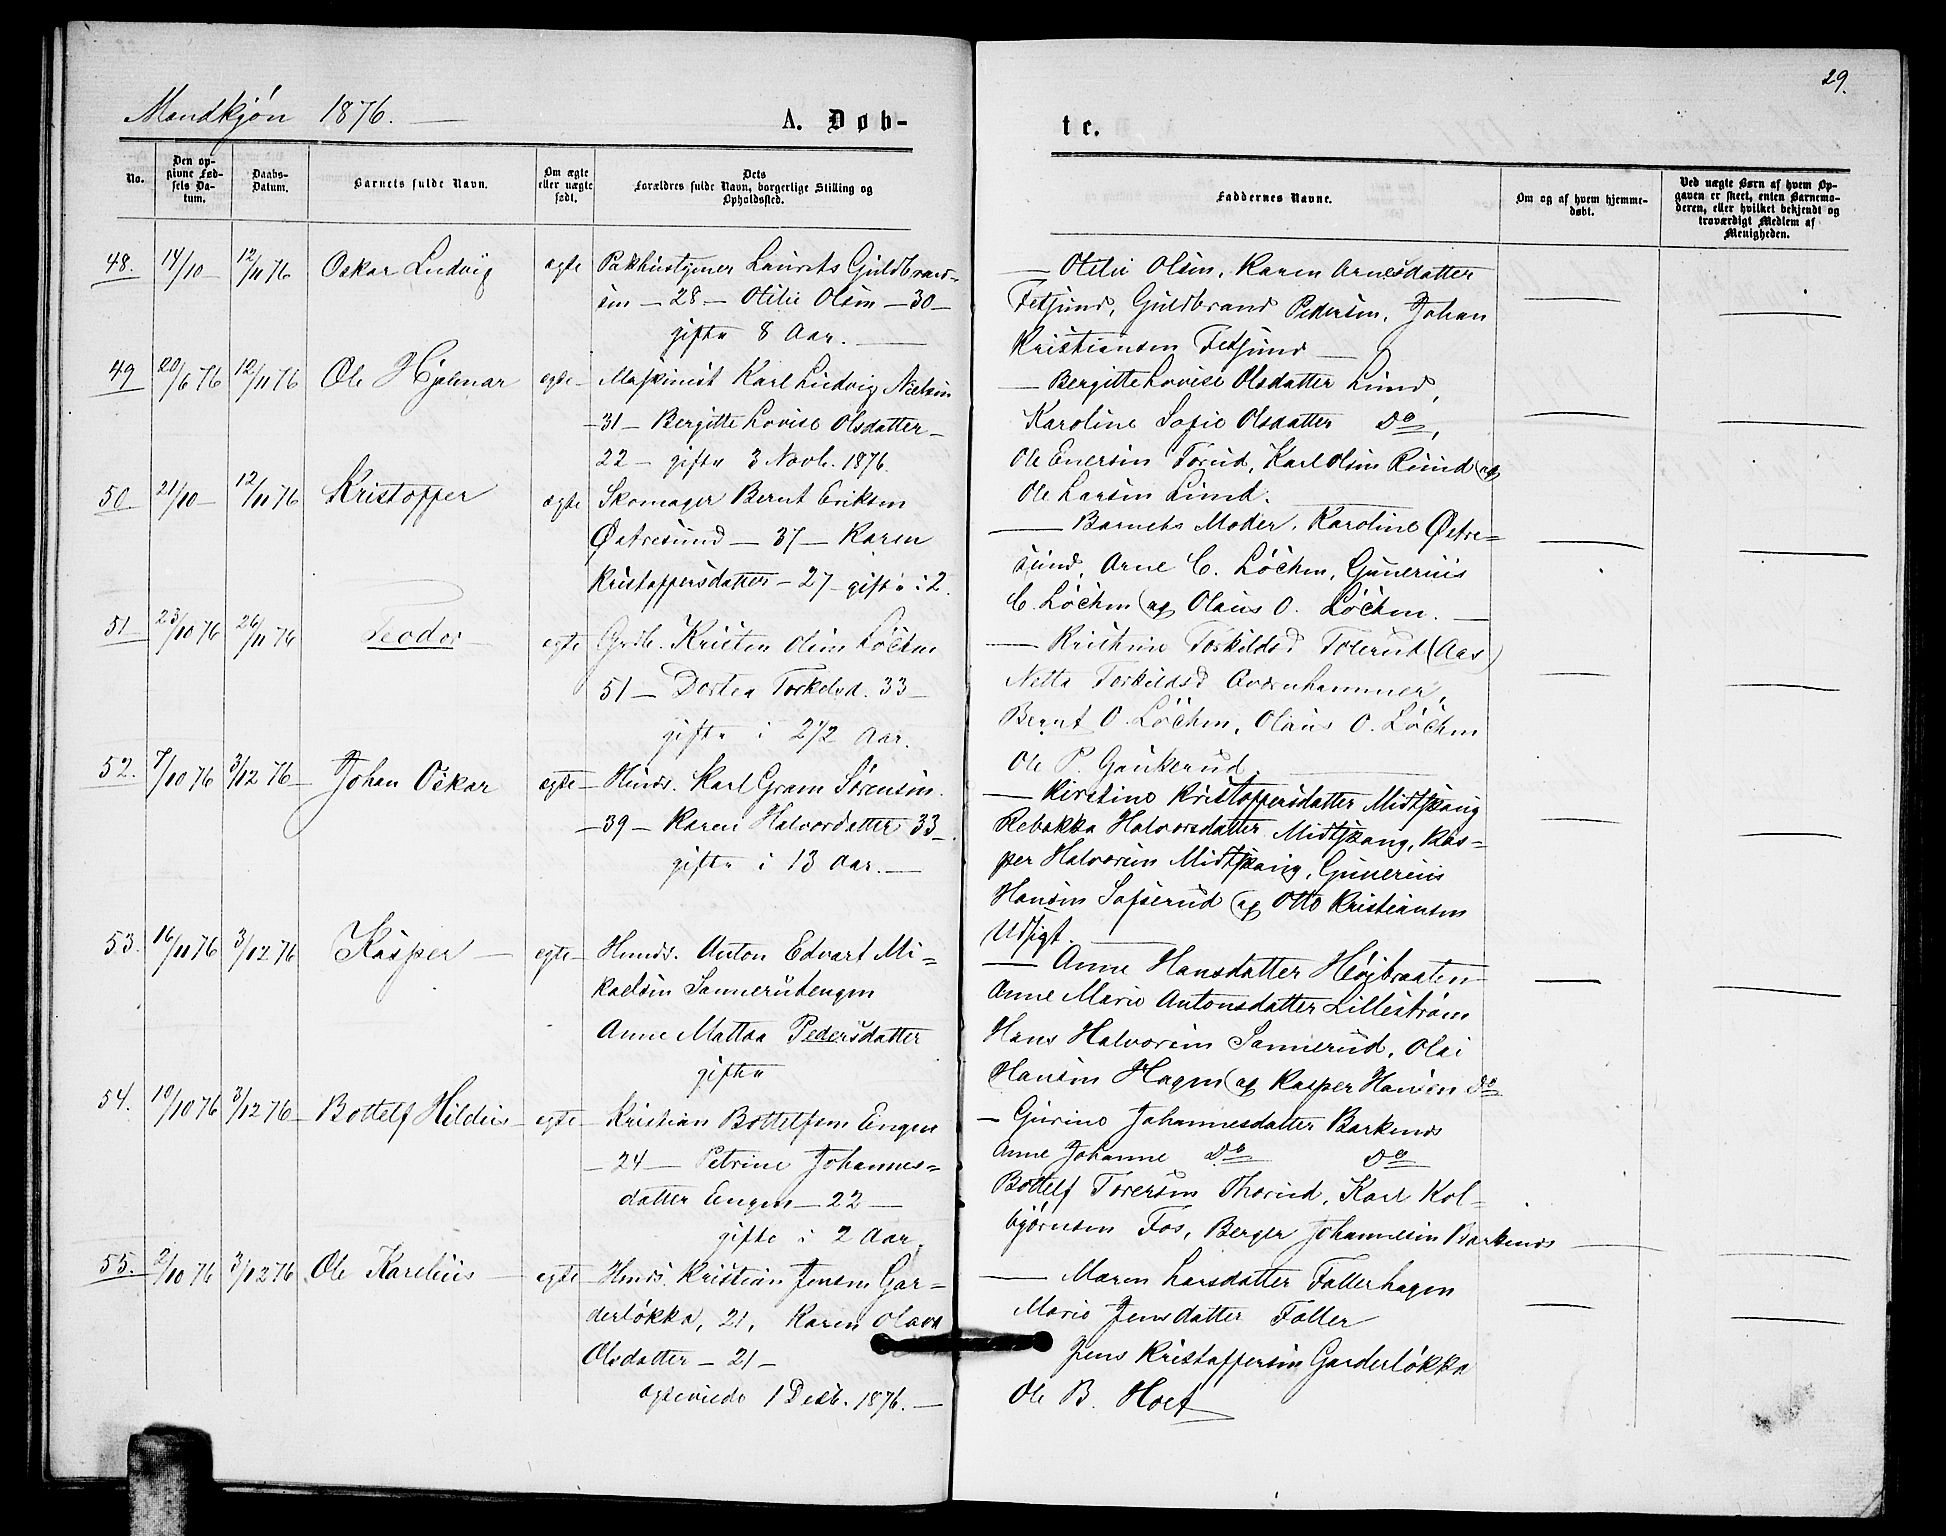 29.
Mandkjøn 1876.
A. Døb-
te.
No.
Den opgivne Fødsels Datum.
Daabs-Datum.
Barnets fulde Navn.
Om ægte eller uægte født.
Dets Forældres fulde Navn, borgerlige Stilling og Opholdssted.
Faddernes Navne.
Om og af hvem hjemmedøbt.
Ved uægte Børn af hvem Opgaven er skeet, enten Barnemoderen, eller hvilket bekjendt og troværdigt Medlem af Menigheden.
48. 14/10 12/11 76 Oskar Ludvig ægte Pakhustjener Laurits Guldbrand-
sen - 28 - Otilie Olsen - 30 -
gifte 8 Aar.
Otilie Olsen, Karen Arnesdatter
Fetsund, Guldbrand Pedersen, Johan
Kristiansen Fetsund
49 20/6 76 12/11 76 Ole Hjalmar egte Maskinist Karl Ludvig Nielsen
- 31 - Bergitte Lovise Olsdatter -
22 - gifte 3 Novb. 1876.
Bergitte Lovise Olsdatter Lund,
Karoline Sofie Olsdatter Do,
Ole Enersen Torud, Karl Olsen Rund og
Ole Larsen Lund.
50 21/10 12/11 76 Kristoffer ægte Skomager Bernt Eriksen
Østresund - 37 - Karen
Kristoffersdatter - 27 - gifte i 2.
Barnets Moder, Karoline Østre-
sund, Arne C. Løchen, Gunerius
C. Løchen og Olaus O. Løchen.
51 23/10 76 26/11 76 Teodor egte Grdb. Kristen Olsen Løchen
51 - Dortea Torkelsd. 33 -
gifte i 2 1/2 Aar.
Kristine Torkildsd Tolerud (Aas)
Netta Torkildsd
Bernt O. Løchen, Olaus O. Løchen
Ole P. Gaukerud
52. 7/10 76 3/12 76 Johan Oskar egte Husds. Karl Gram Sørensen.
- 39 - Karen Halvordatter 33 -
gifte i 13 Aar.
Kirstine Kristoffersdatter Midtskaug
Rebekka Halvorsdatter Midtskaug, Kas-
per Halvorsen Midtskaug, Gunerius
Hansen Tofserud og Otto Kristiansen
Udsigt.
53. 16/11 76 3/12 76 Kasper egte Husds. Anton Edvart Mi-
kaelsen Sannerudengen
Anne Mattea Pedersdatter
gifte
Anne Hansdatter Høibraaten
Anne Marie Antonsdatter Lillestrøm
Hans Halvorsen Sannerud, Olai
Hansen Hagen og Kasper Hansen Do
54. 10/10 76 3/12 76 Bottelf Hildeus egte Kristian Bottelfsen Engen
- 24 - Petrine Johannes-
datter Engen - 22 -
gifte i 2 Aar.
Gurine Johannesdatter Barkenes
Anne Johanne Do Do
Bottelf Torersen Thorud, Karl Kol-
bjørnsen Fos, Berger Johannesen Barkenes
55. 2/10 76 3/12 76 Ole Karelius egte Husds. Kristian Jensen Gar-
derløkka, 21, Karen Olava
Olsdatter - 21 -
ægteviede 1 Desb. 1876.
Maren Larsdatter Fallerhagen
Marie Jensdatter Faller
Jens Kristoffersen Garderløkka
Ole B. Hoel